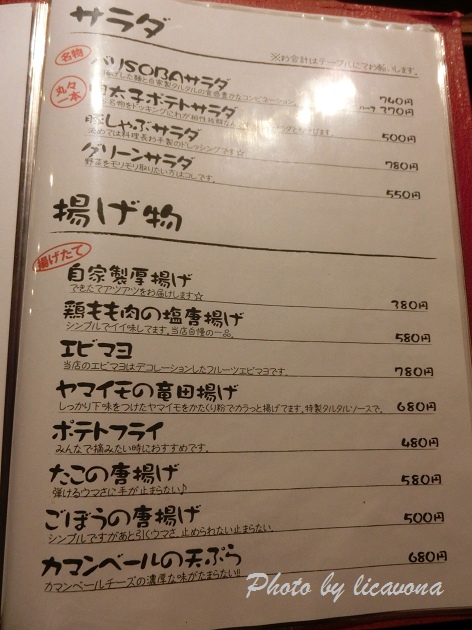 サラダ
※お会計はテーブルにてお願いします。
名物
USOBAサラダ
740円
ハーフ 370円
丸々一本
明太子ポテトサラダ
500円
豚しゃぶサラダ
780円
グリーンサラダ
野菜をモリモリ取りたい方はコレです。
550円
揚げ物
揚げたて
自家製厚揚げ
できたてアツアツをお届けします☆
380円
鶏もも肉の塩唐揚げ
シンプルでイイ味してます。当店自慢の一品。
580円
エビマヨ
当店のエビマヨはデコレーションしたフルーツエビマヨです。
780円
ヤマイモの竜田揚げ
しっかり下味をつけたヤマイモをかたくり粉でカラっと揚げてます。特製タルタルソースで。
680円
ポテトフライ
みんなで摘みたい時におすすめです。
480円
たこの唐揚げ
弾けるウマさに手が止まらない♪
580円
ごぼうの唐揚げ
シンプルですがあと引くウマさ、止められない止まらない
500円
カマンベールの天ぷら
カマンベールチーズの濃厚な味がたまらない!!
680円
Photo by licavona